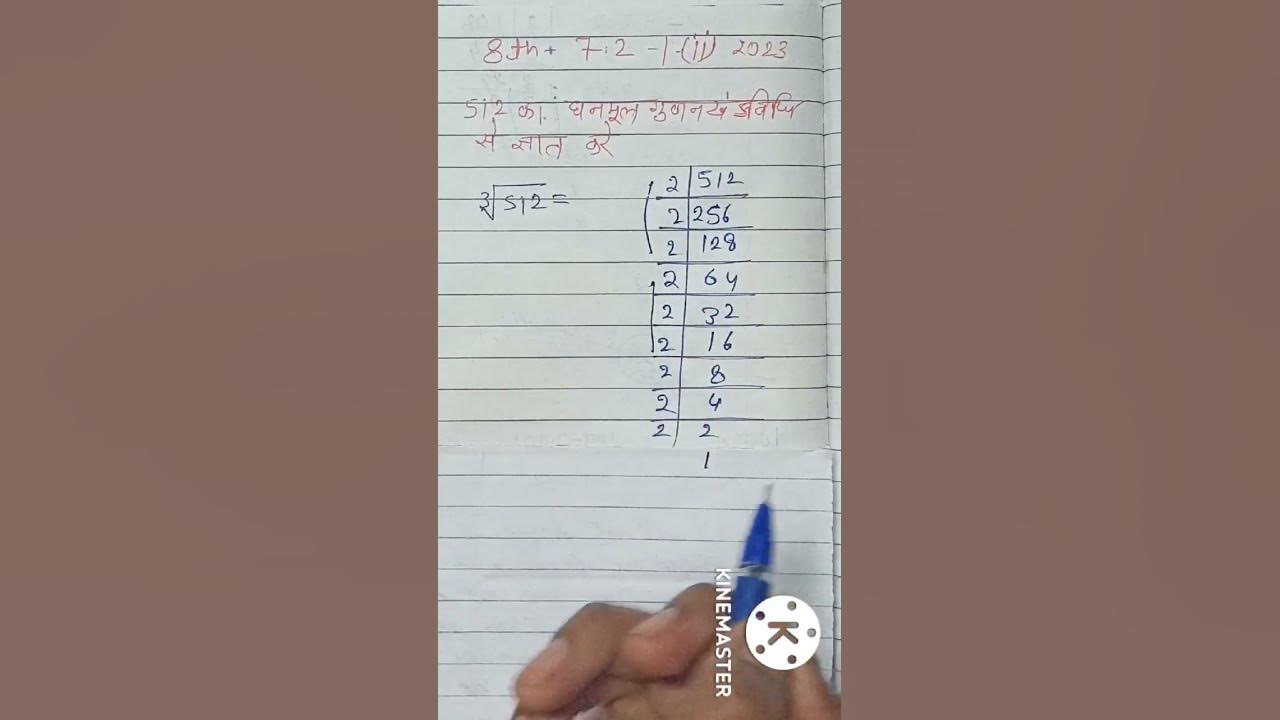 8th + 7.2 - 1-(ii) 2023
512 का घनमूल गुणनखंडविधि
से ज्ञात करे
∛512 =
2 | 512
2 | 256
2 | 128
2 | 64
2 | 32
2 | 16
2 | 8
2 | 4
2 | 2
1
KINEMASTER